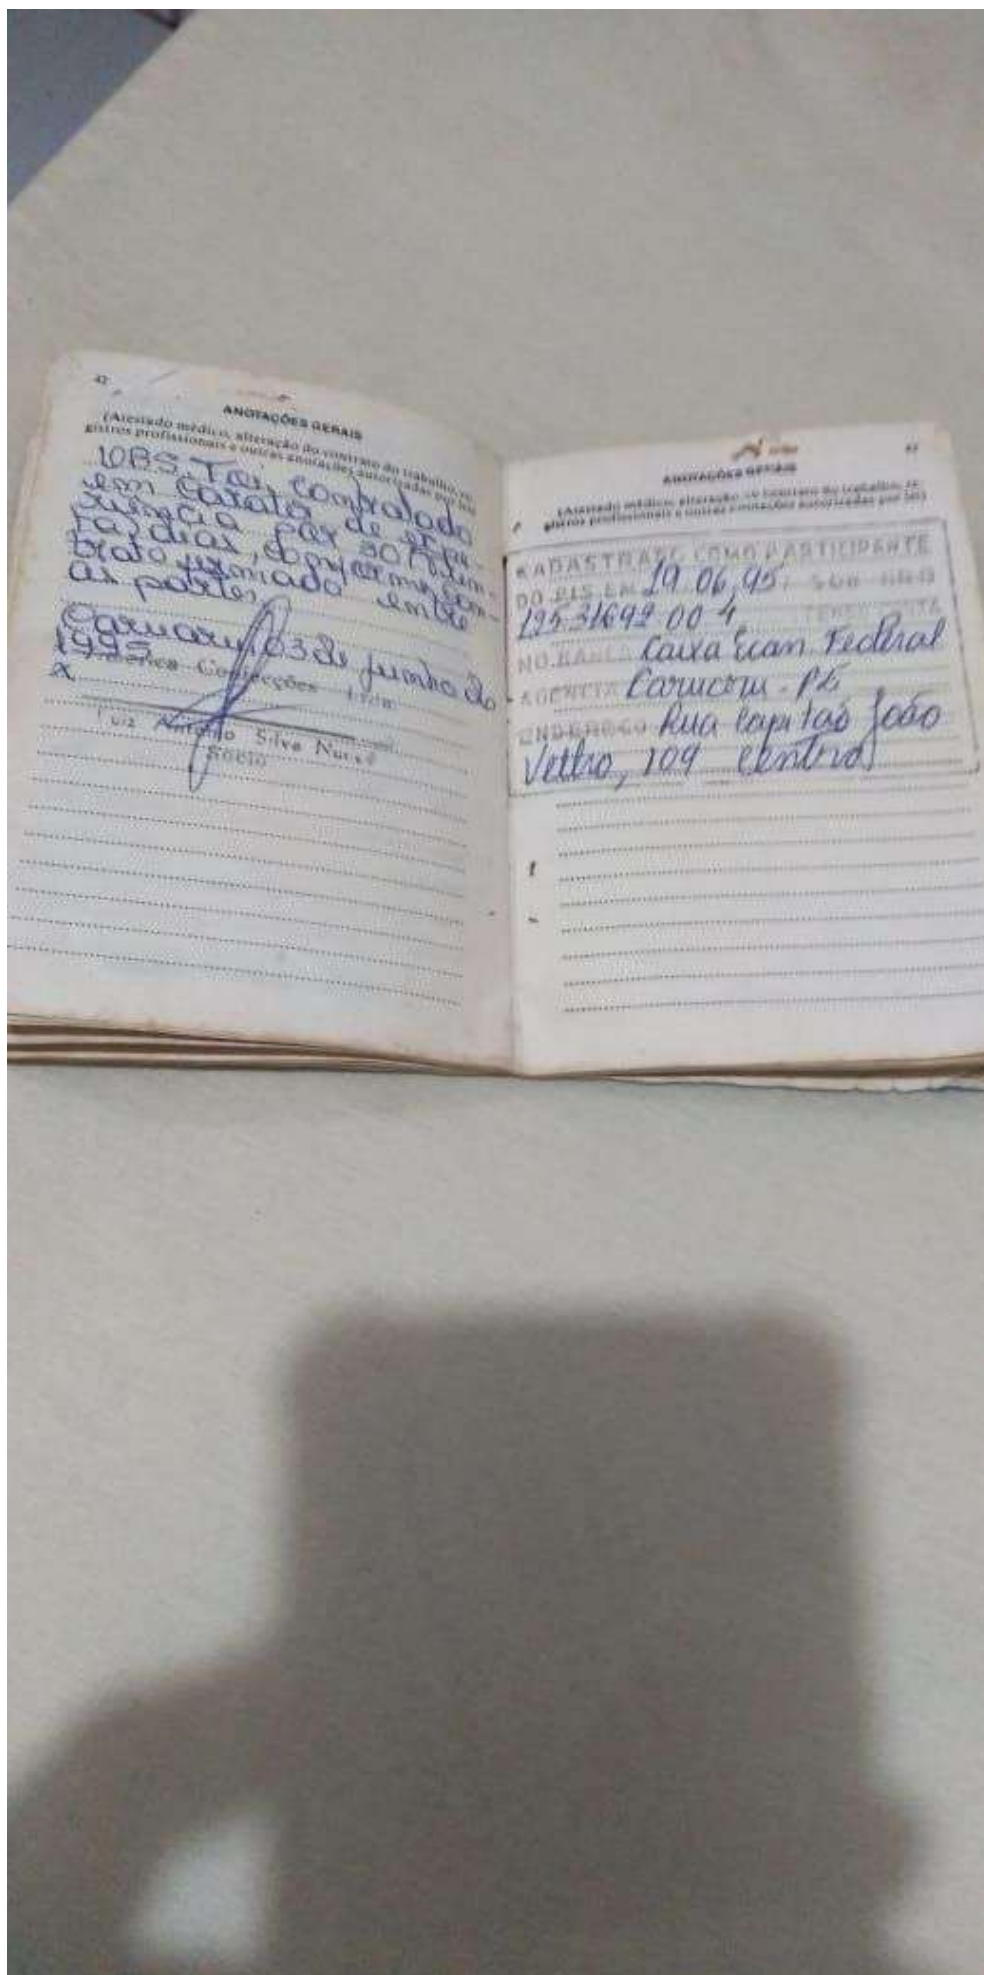 42
ANOTAÇÕES GERAIS
(Atestado médico, alteração do contrato do trabalho, re-
gistros profissionais e outras anotações autorizadas por lei)
OBS. Foi contratado
em carater de expe-
riência por 30
ta) dias, conforme con-
trato firmado entre
as partes
Caruaru, 03 de junho de
1995
Confecções Ltda
x
Luiz Antonio Silva
Sócio
43
ANOTAÇÕES GERAIS
(Atestado médico, alteração do contrato do trabalho, re-
gistros profissionais e outras anotações autorizadas por lei)
CADASTRADO COMO PARTICIPANTE
DO PIS EM 19.06.95 SOB NRO
125 31692 00 4
NO BANCO Caixa Econ. Federal
AGENCIA Caruaru - PE
ENDEREÇO Rua Capitão João
Velho, 109 Centro